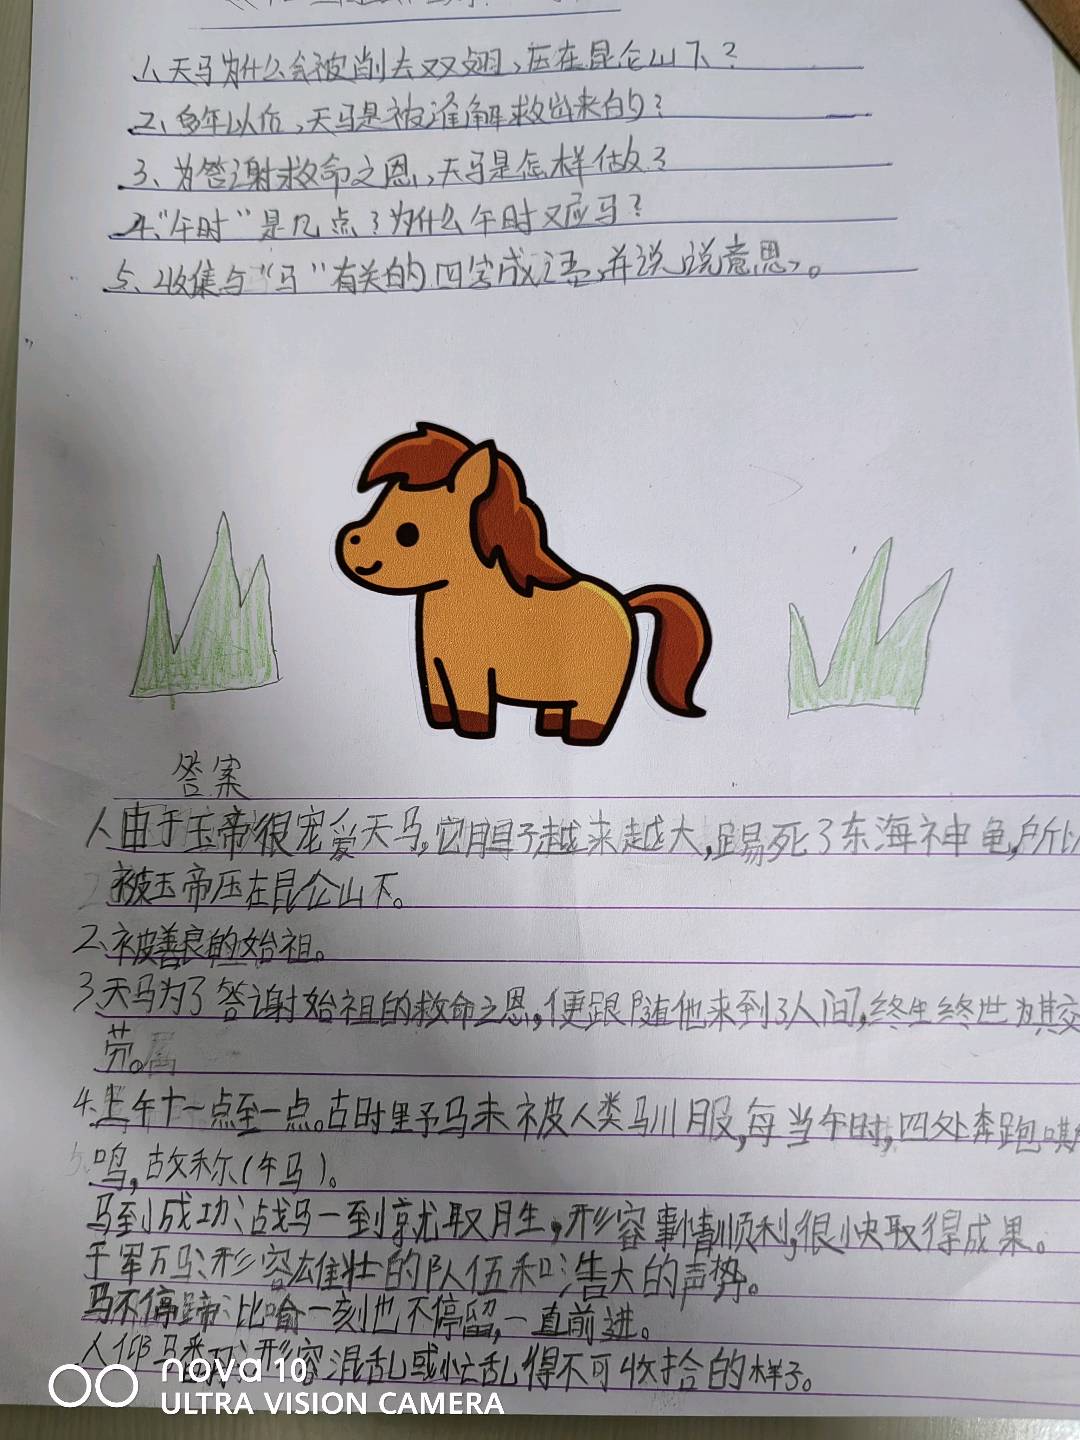 1、天马为什么会被削去双翅,压在昆仑山下?
2、多年以后,天马是被谁解救出来的?
3、为答谢救命之恩,天马是怎样做?
4、“午时”是几点?为什么午时又应马?
5、收集与“马”有关的四字成语,并说说意思。
答案
1、由于玉帝很宠爱天马,它胆子越来越大,踢死了东海神龟,所以
被玉帝压在昆仑山下。
2、被善良的始祖。
3、天马为了答谢始祖的救命之恩,便跟随他来到了人间,终生终世为其效
劳。
4、上午十一点至一点。古时野马未被人类驯服,每当午时,四处奔跑嘶
鸣,故称(午马)。
马到成功:战马一到就取胜,形容事情顺利,很快取得成果。
千军万马:形容雄壮的队伍和浩大的声势。
马不停蹄:比喻一刻也不停留,一直前进。
人仰马翻:形容混乱或忙乱得不可收拾的样子。
nova 10
ULTRA VISION CAMERA